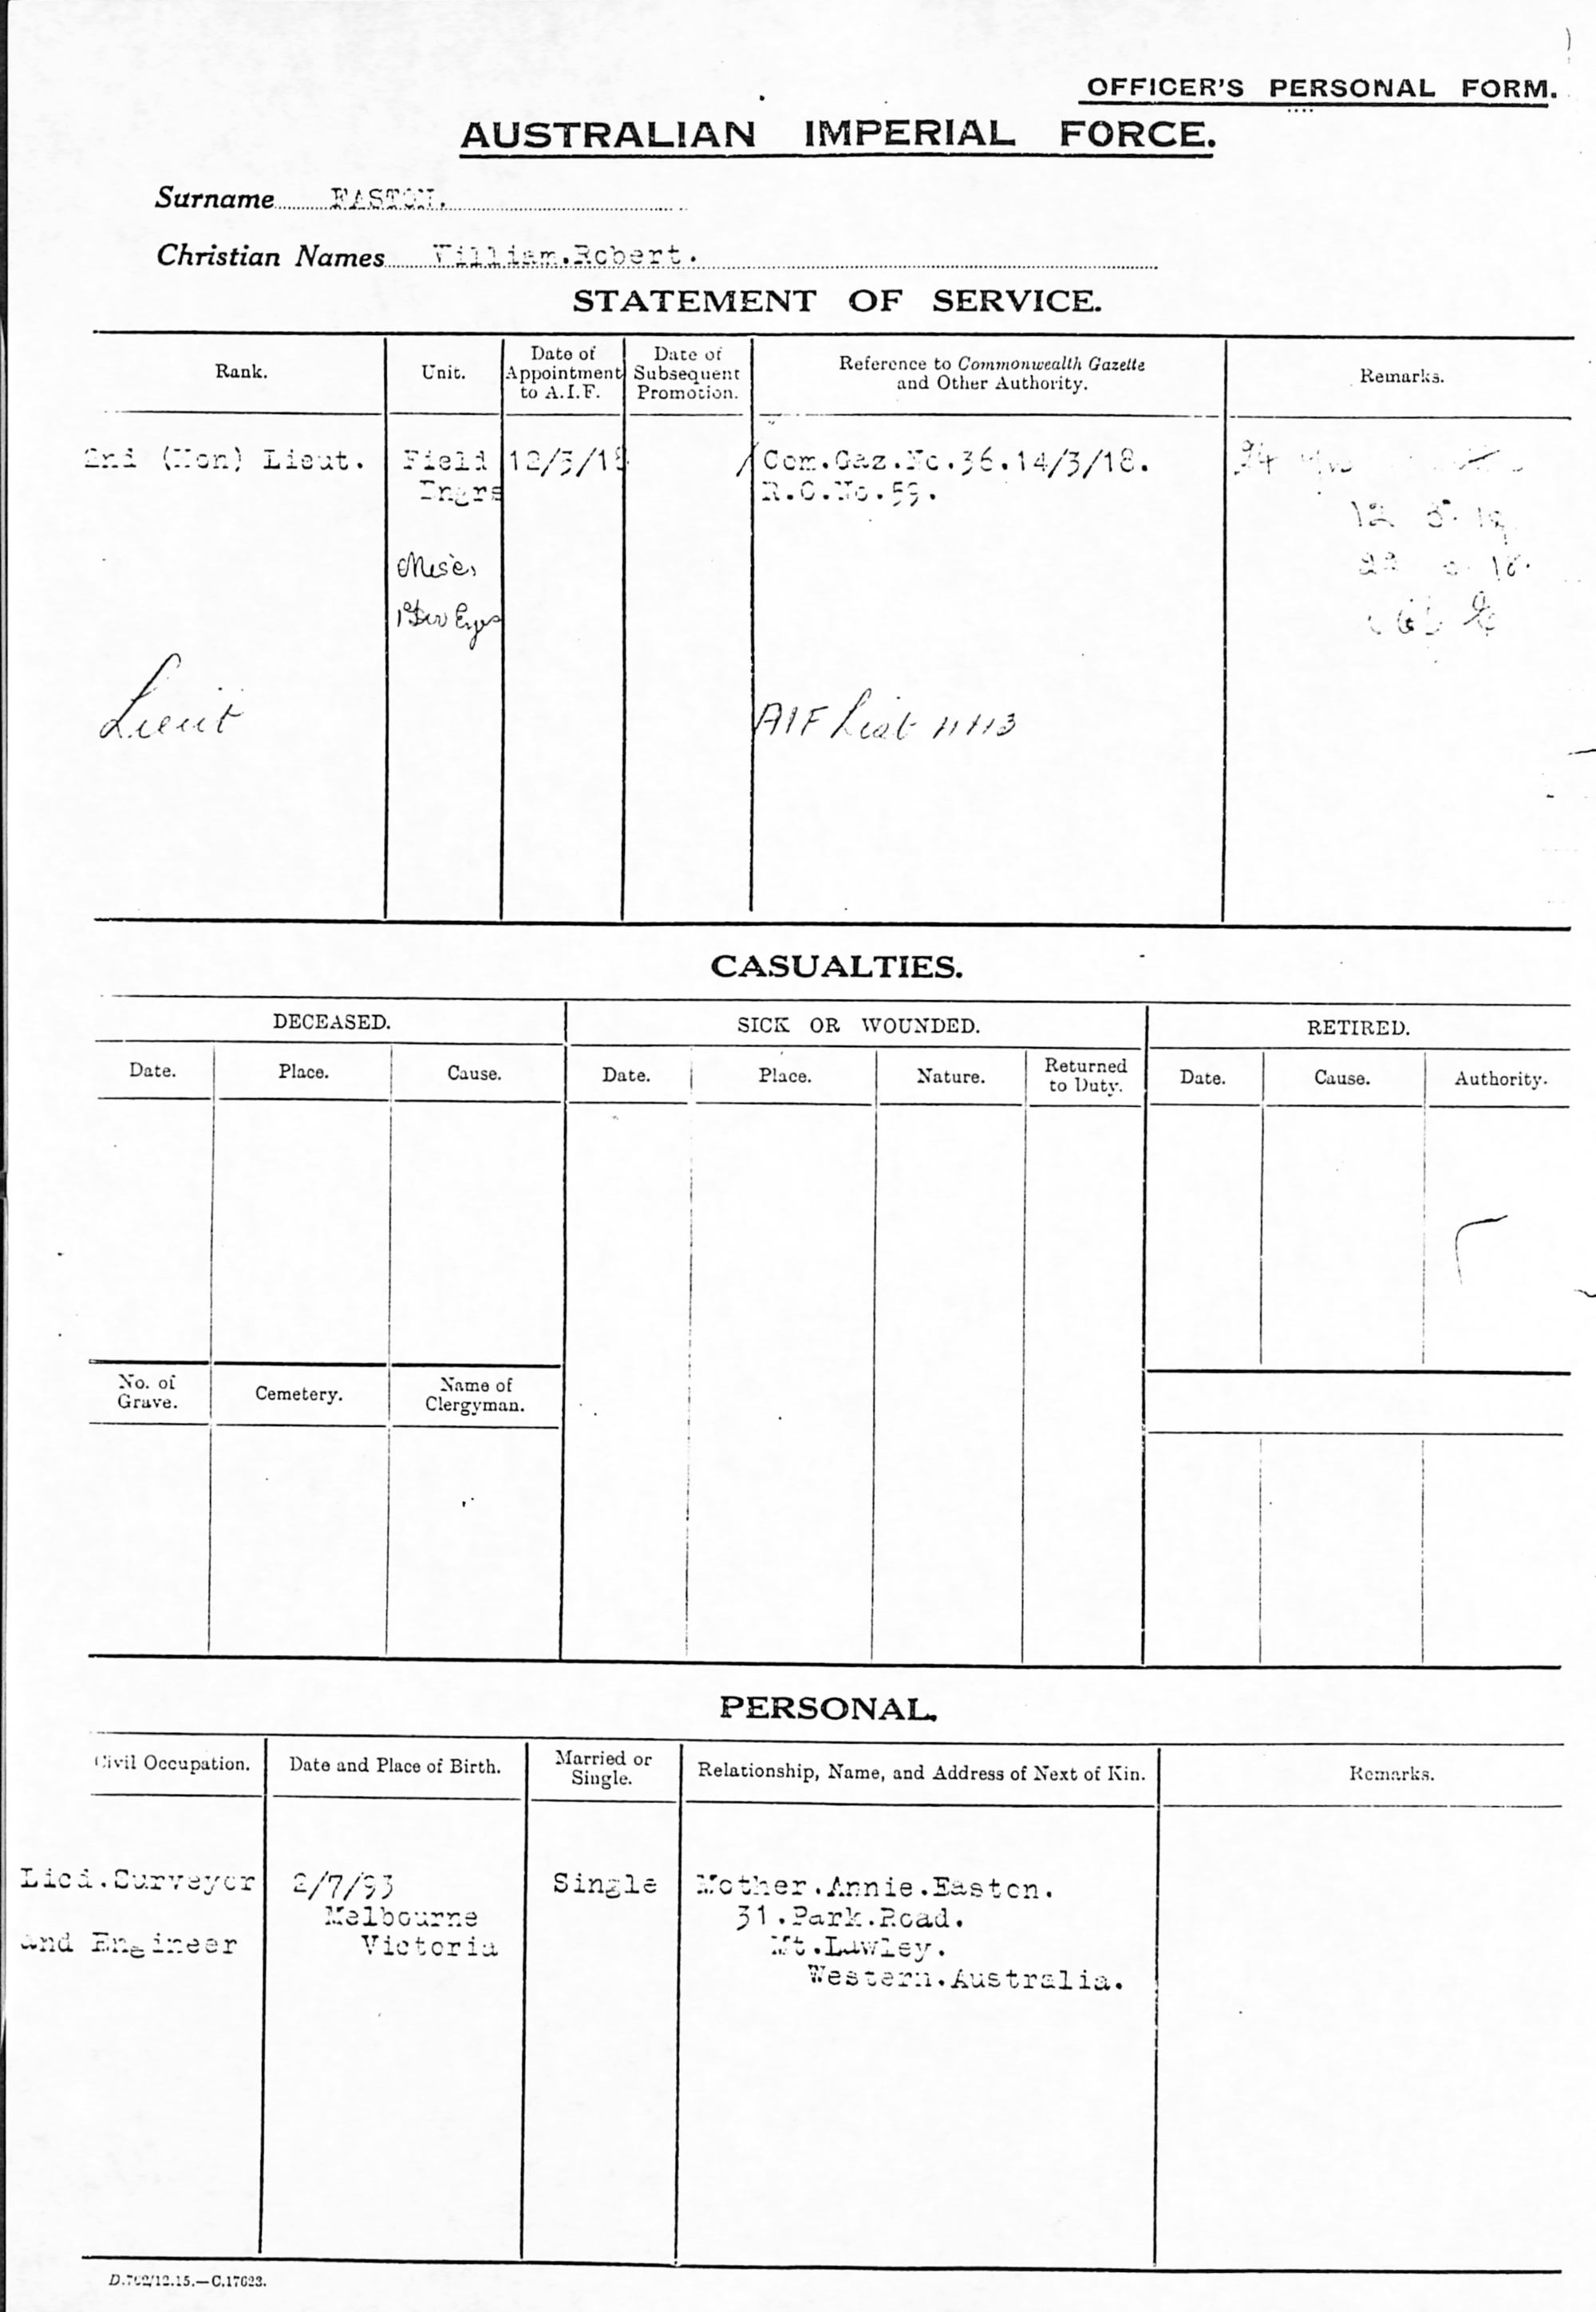 OFFICER'S PERSONAL FORM.
AUSTRALIAN IMPERIAL FORCE.
Surname EASTON.
Christian Names William.Robert.
STATEMENT OF SERVICE.
Rank. Unit. Date of Appointment to A.I.F. Date of Subsequent Promotion. Reference to Commonwealth Gazette and Other Authority. Remarks.
2nd (Hon) Lieut. Field 12/3/18 Com.Gaz.No.36.14/3/18.
Engrs R.O.No.59.
Lieut AIF List
CASUALTIES.
DECEASED. SICK OR WOUNDED. RETIRED.
Date. Place. Cause. Date. Place. Nature. Returned to Duty. Date. Cause. Authority.
No. of Grave. Cemetery. Name of Clergyman.
PERSONAL.
Civil Occupation. Date and Place of Birth. Married or Single. Relationship, Name, and Address of Next of Kin. Remarks.
Licd.Surveyor 2/7/93 Single Mother.Annie.Easton.
Melbourne 31.Park.Road.
and Engineer Victoria Mt.Lawley.
Western.Australia.
D.702/12.15.—C.17623.